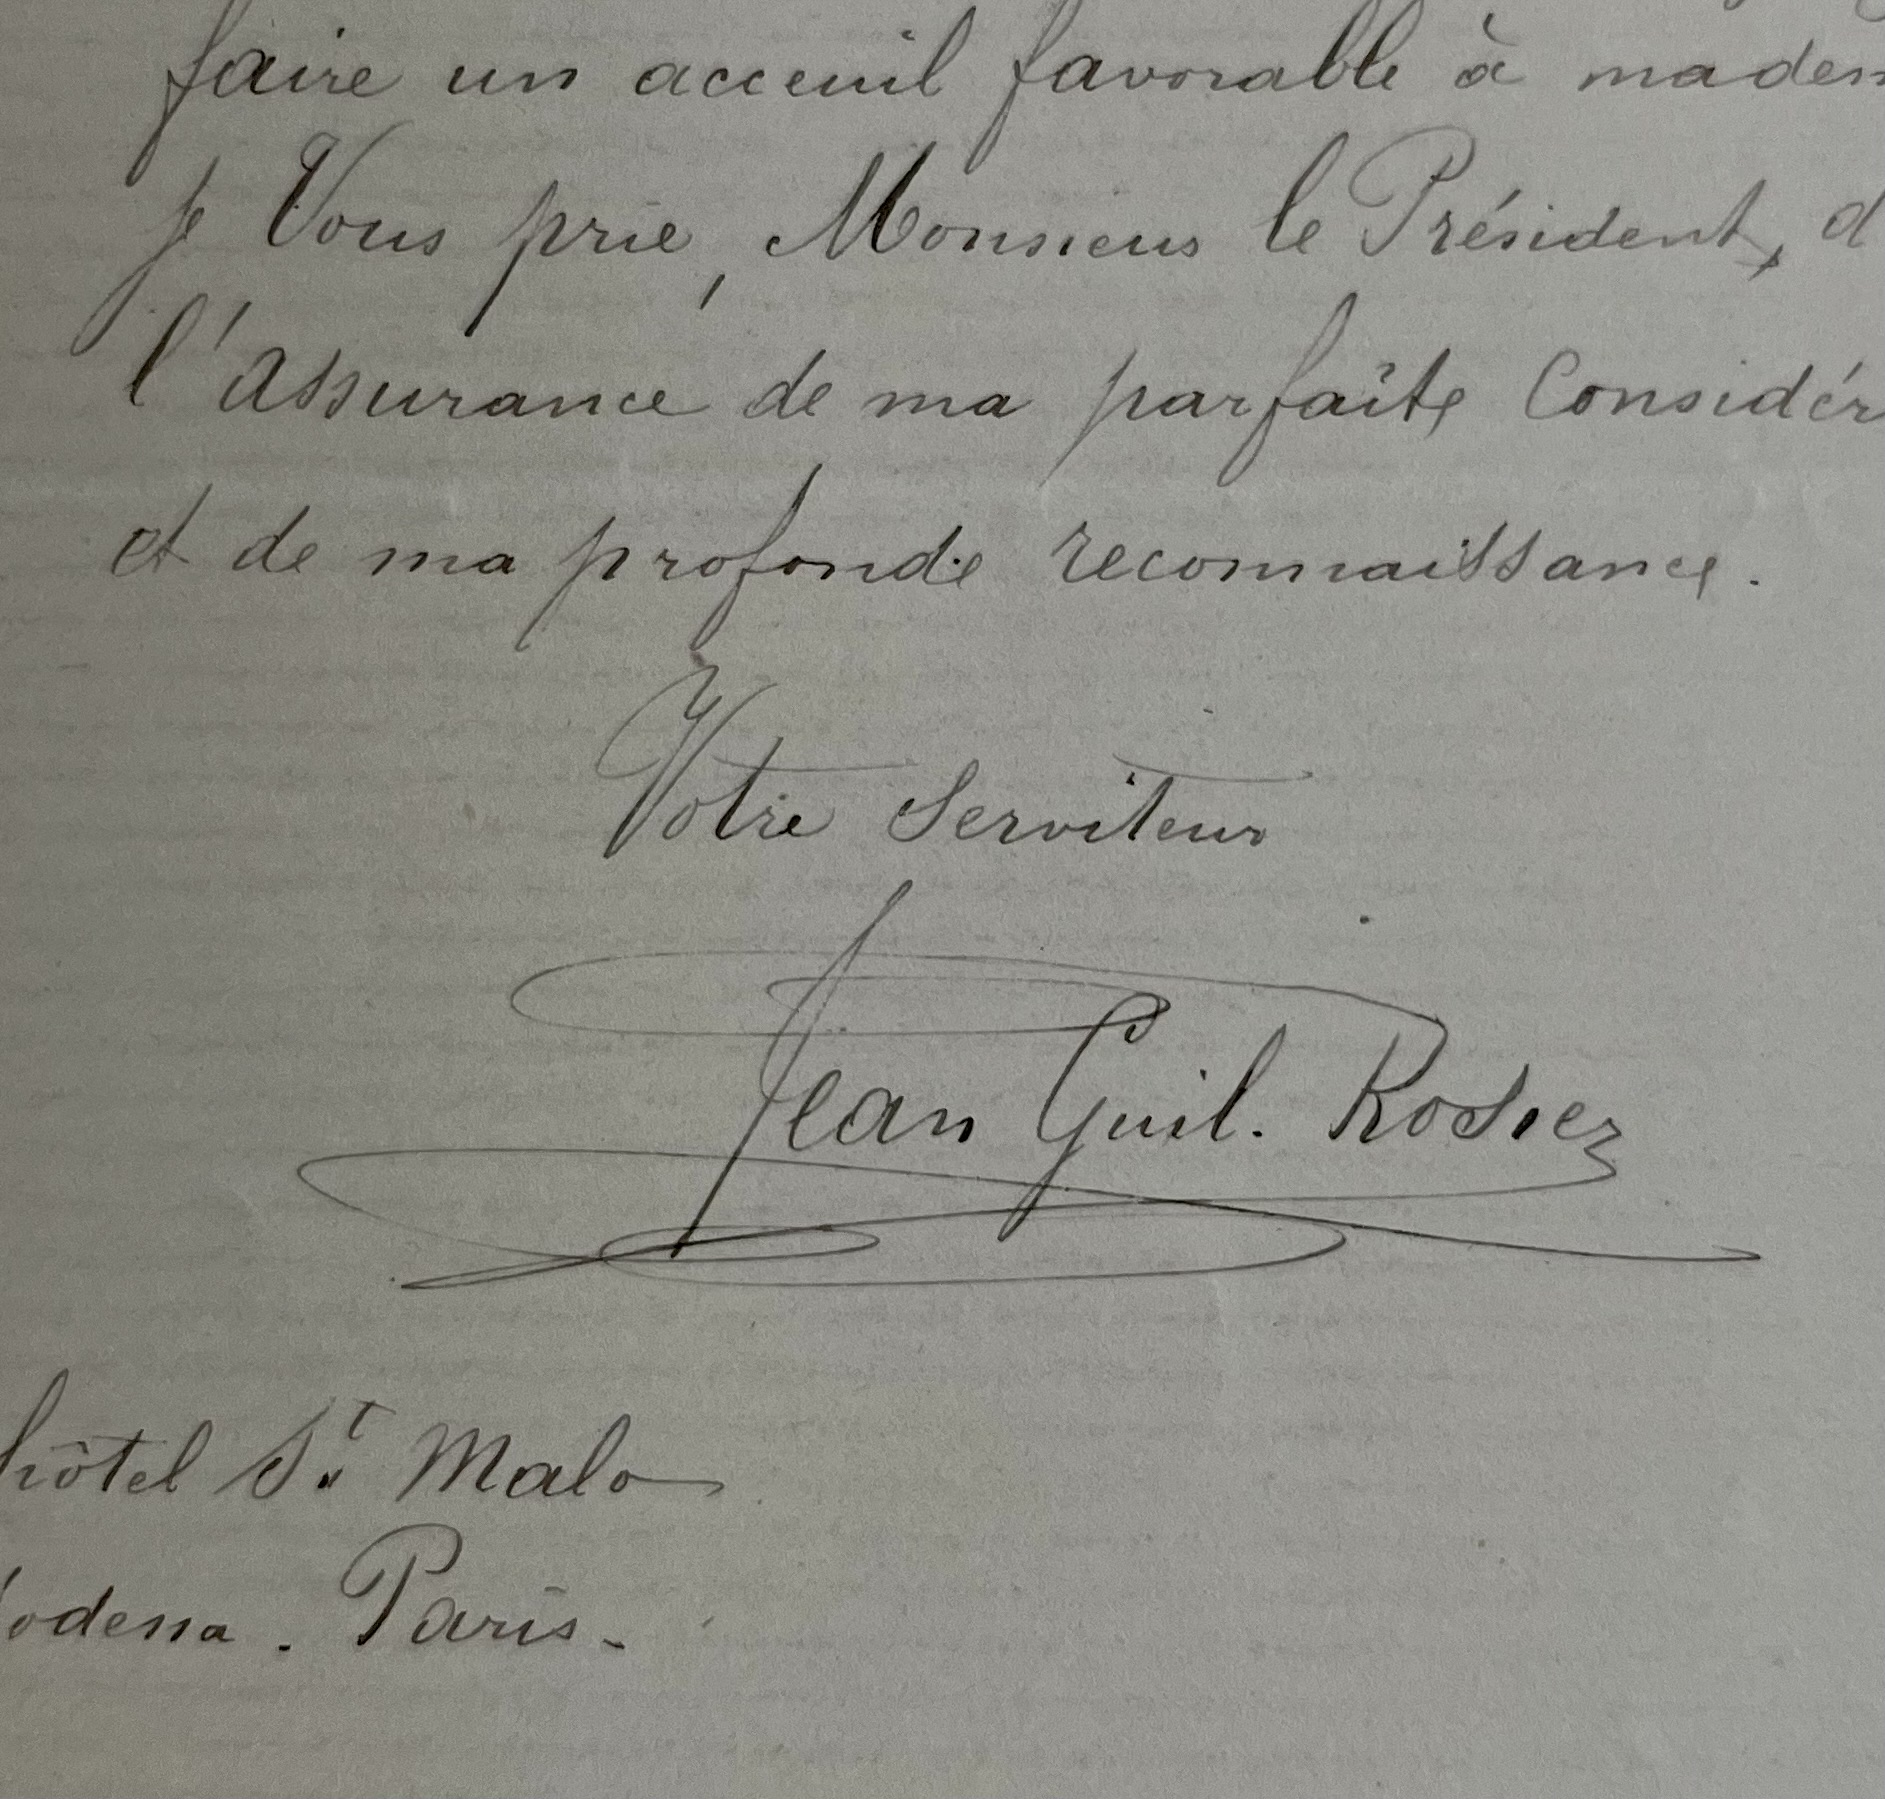 faire un acceuil favorable à madem
je Vous prie, Monsieur le Président, d
l'assurance de ma parfaite Considér
et de ma profonde reconnaissance.
Votre Serviteur
Jean Guil. Rosiez
hôtel St Malo
d'odessa. Paris.